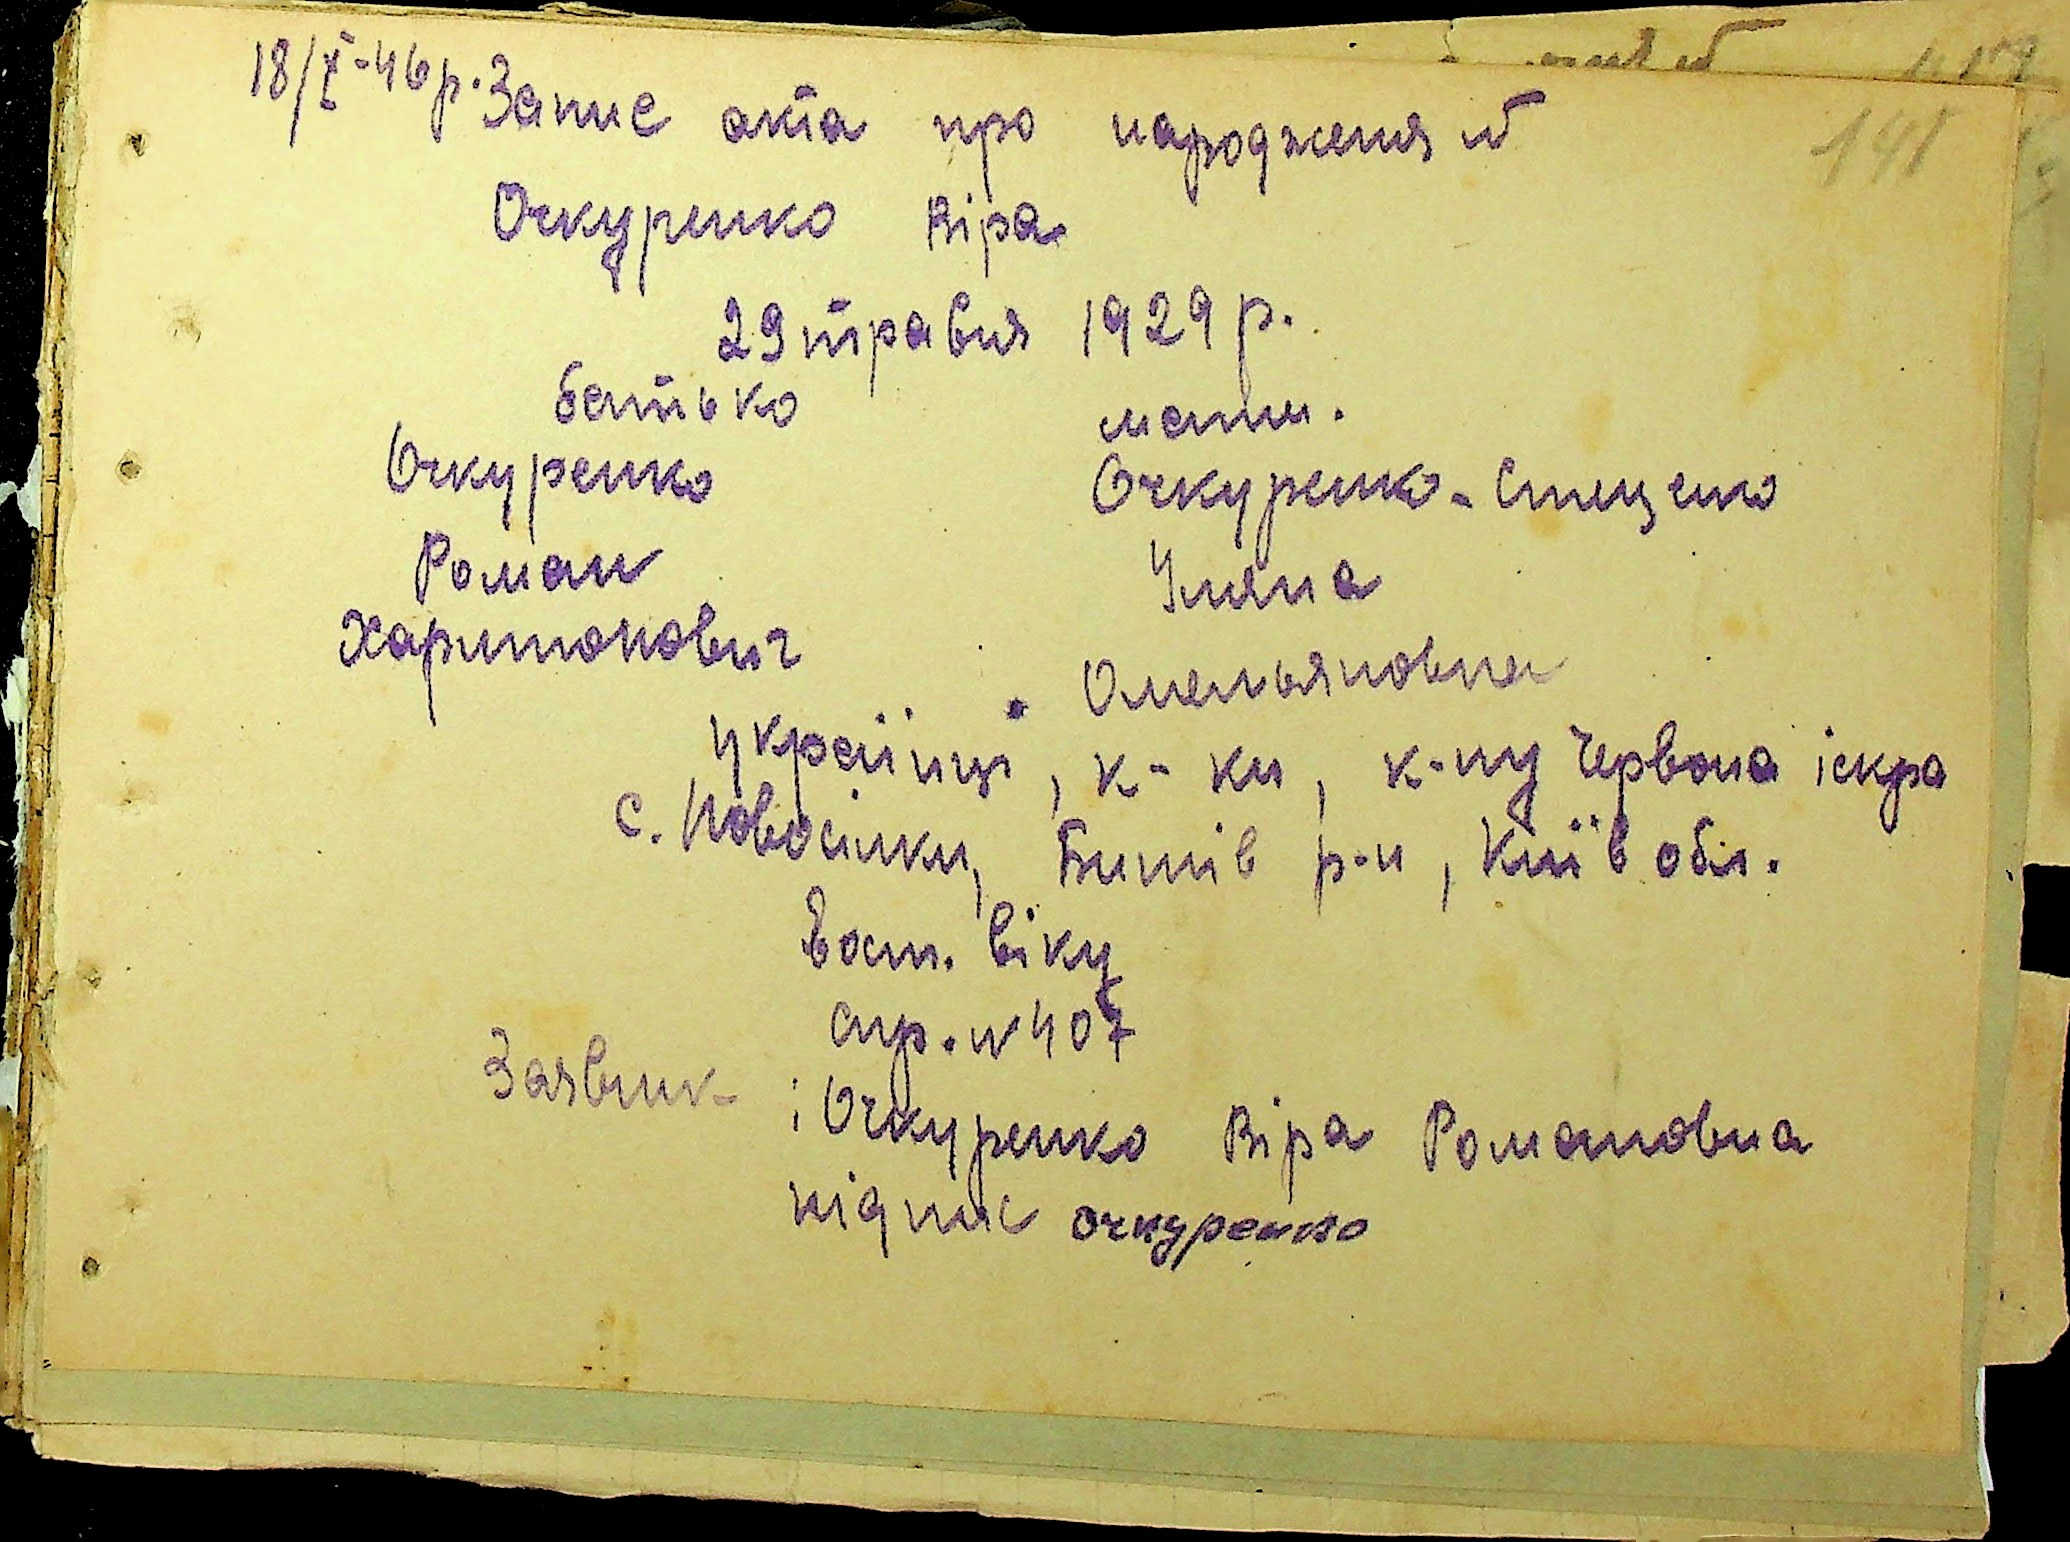 18/X-46р. Запис акта про народження №
141
Очкуренко Віра
29 травня 1929 р.
батько мати.
Очкуренко Очкуренко-Стеценко
Роман Уляна
Харитонович Омельяновна
українці, к-ки, к-пу Червона іскра
с. Новосілки, Бишів р-н, Київ обл.
Вост. віку
спр. №407
Заявник- і Очкуренко Віра Романовна
підпис очкуренко